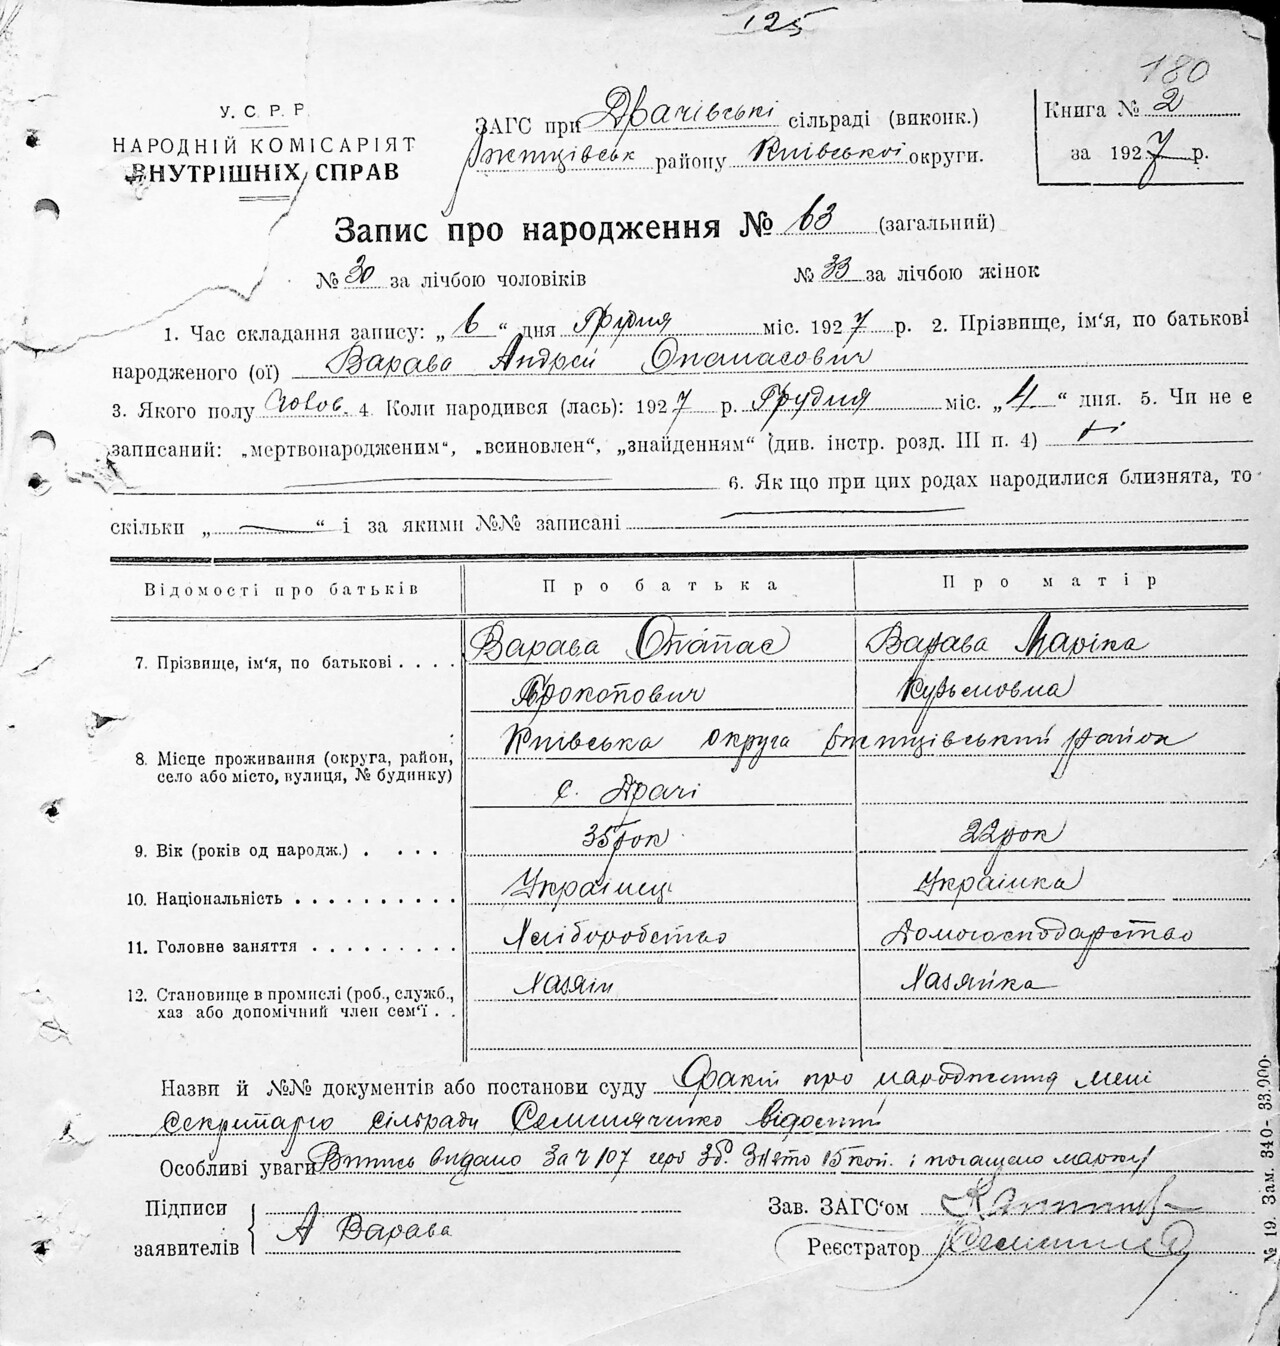 125
180
У. С. Р. Р.
НАРОДНІЙ КОМІСАРІЯТ
ВНУТРІШНІХ СПРАВ
ЗАГС при Драчівські сільраді (виконк.)
району Київської округи.
Книга № 2
за 1927 р.
Запис про народження № 63 (загальний)
№ 30 за лічбою чоловіків № 33 за лічбою жінок
1. Час складання запису: „ 6 “ дня Грудня міс. 1927 р. 2. Прізвище, ім'я, по батькові
народженого (ої) Варава Андрей Опанасович
3. Якого полу Чолов. 4. Коли народився (лась): 1927 р. Грудня міс. „ 4 “ дня. 5. Чи не е
записаний: „мертвонародженим“, „всиновлен“, „знайденням“ (див. інстр. розд. III п. 4) ні
6. Якщо при цих родах народилися близнята, то
скільки „ — “ і за якими №№ записані
Відомості про батьків Про батька Про матір
7. Прізвище, ім'я, по батькові . . . . Варава Опанас Варава Маріка
Прокопович Кузьмовна
8. Місце проживання (округа, район, село або місто, вулиця, № будинку) Київська округа район
с. Драчі
9. Вік (років од народж.) . . . . 35 рок 22 рок
10. Національність . . . . . . . . . . Українец Українка
11. Головне заняття . . . . . . . . . Хліборобство Домогосподарство
12. Становище в промислі (роб., служб., хаз або допомічний член сем'ї . . Хазяїн Хазяйка
Назви й №№ документів або постанови суду Факт про народження мені
секритарю сільради відомий
Особливі уваги Витись видано за ч 107 герб зб. Знято 15 коп. і погашено марки
Підписи
заявителів
А Варава
Зав. ЗАГС'ом
Реєстратор
№ 19. Зам. 340- 33.000.